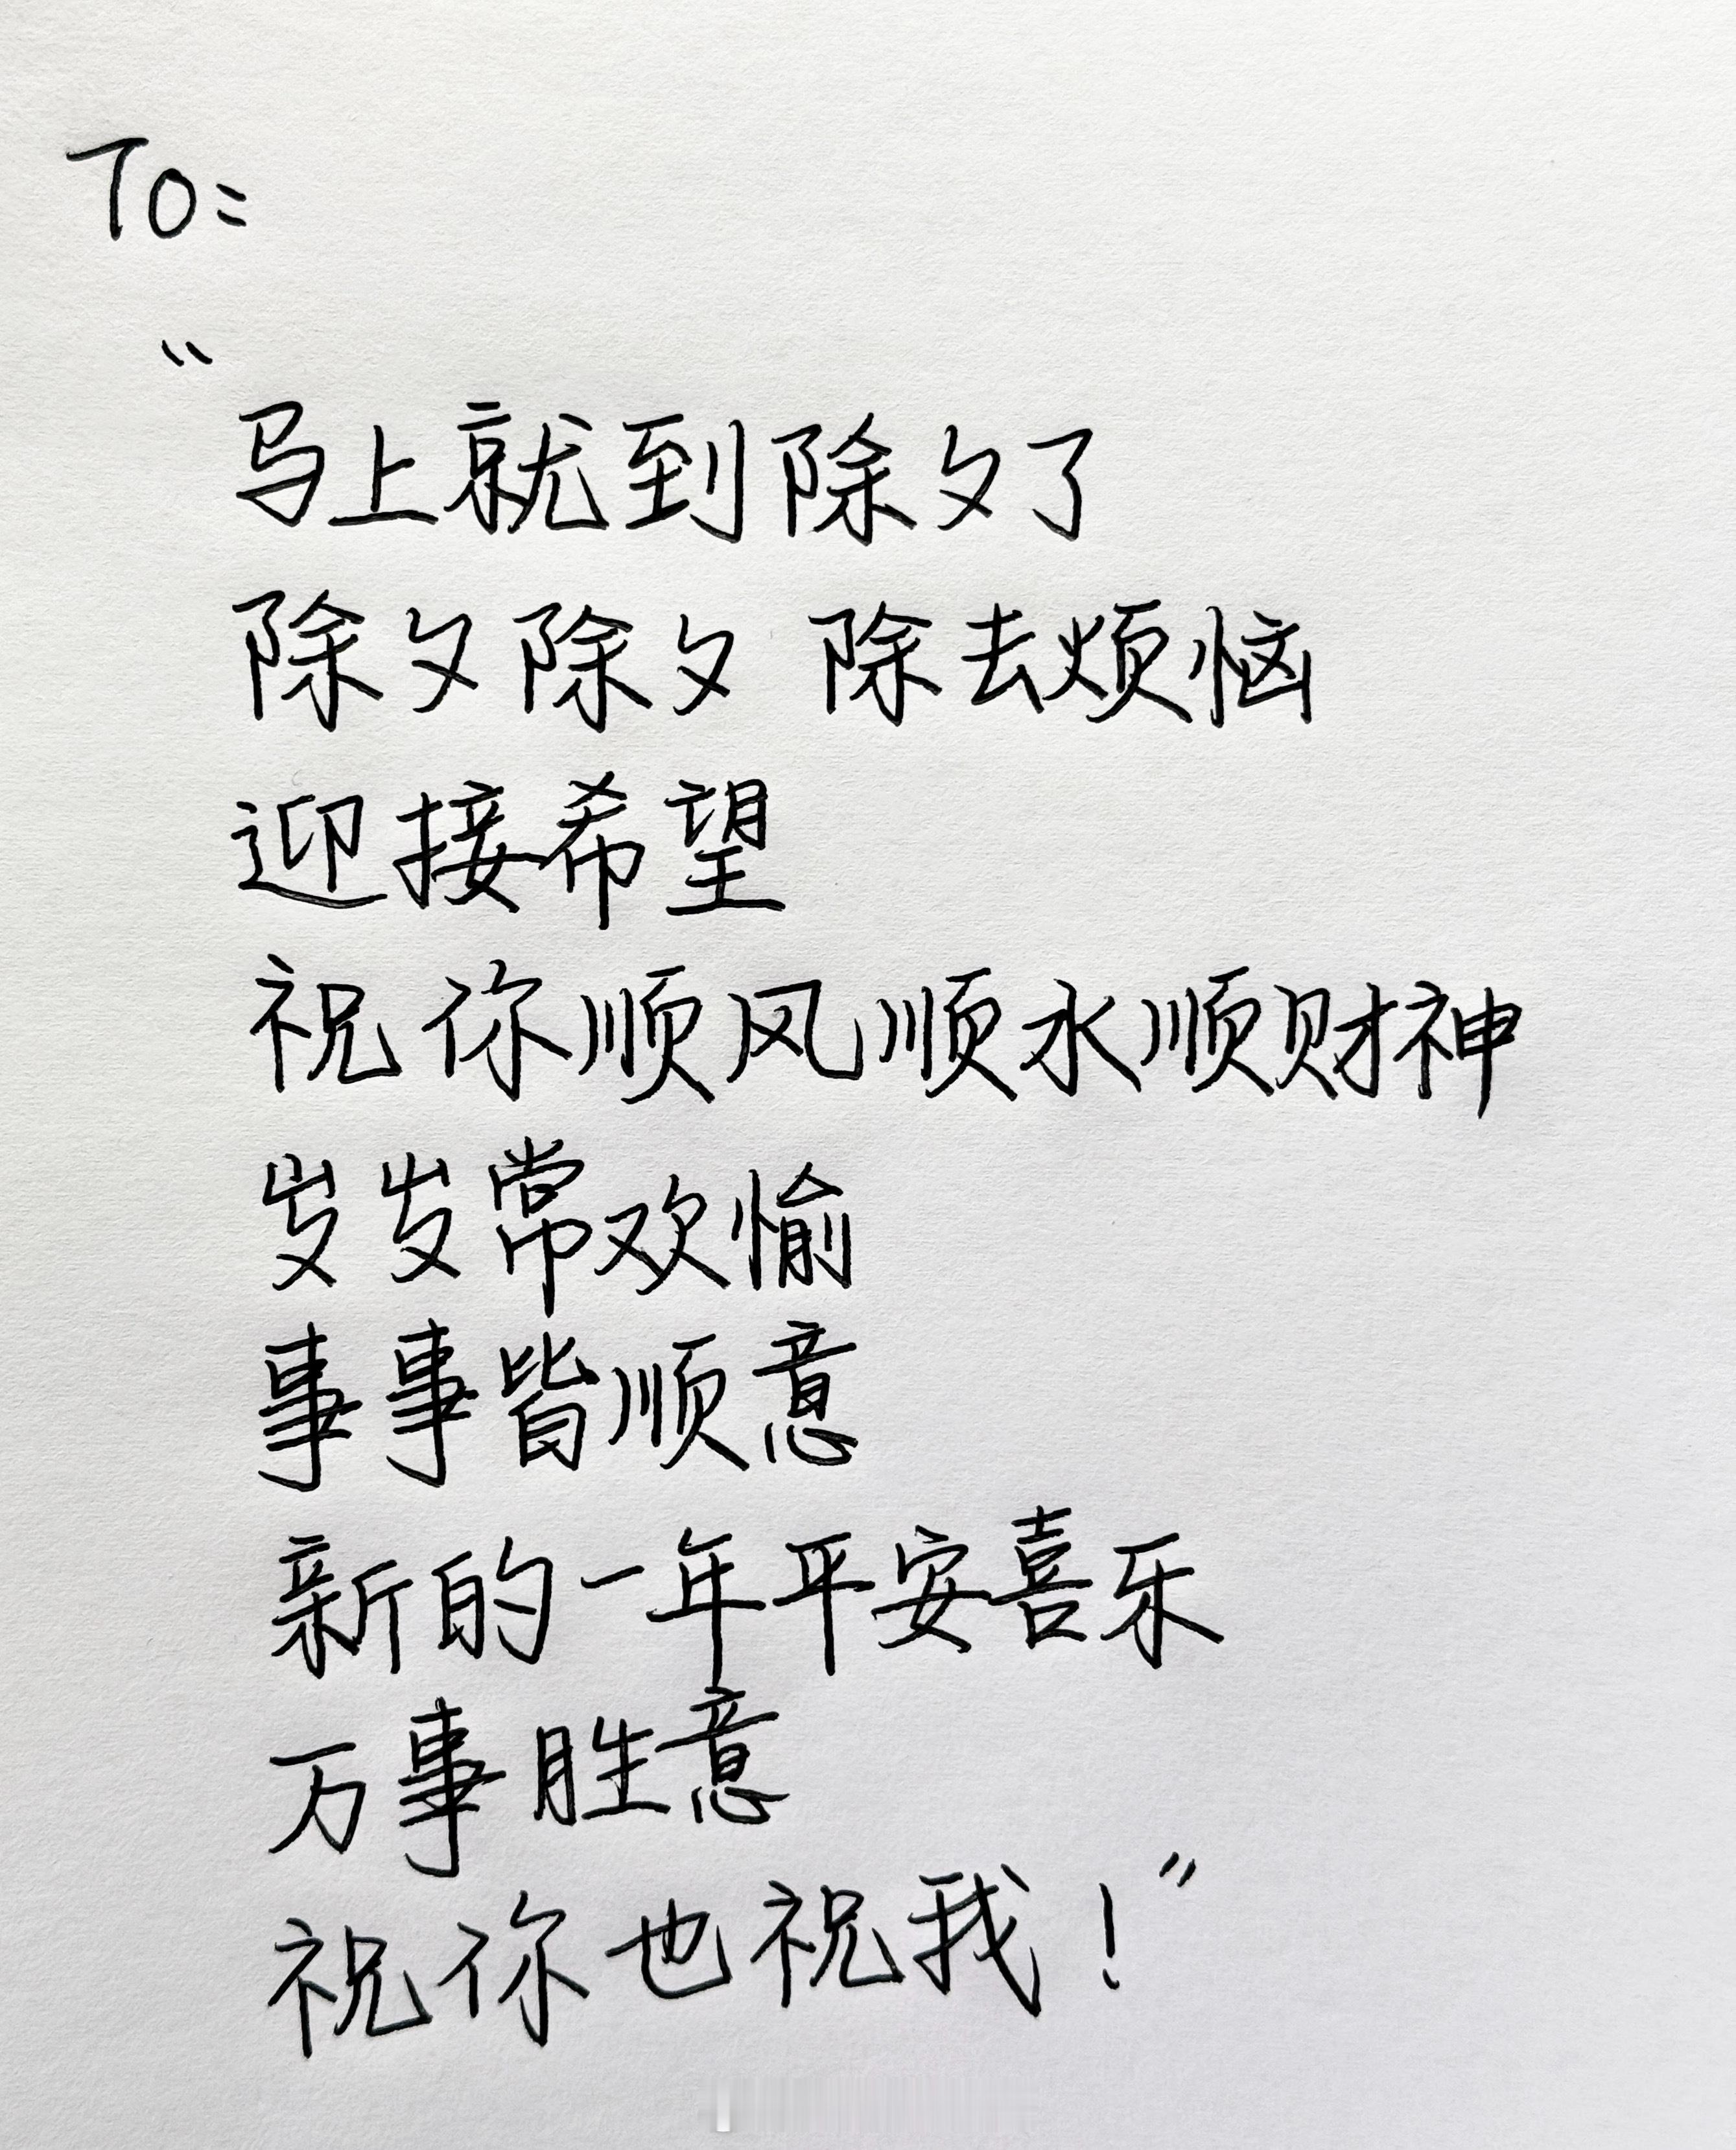 To:
“
马上就到除夕了
除夕除夕 除去烦恼
迎接希望
祝你顺风顺水顺财神
岁岁常欢愉
事事皆顺意
新的一年平安喜乐
万事胜意
祝你也祝我！”